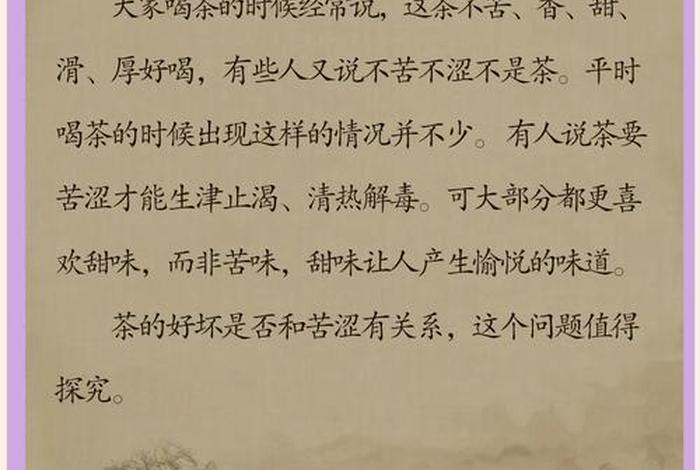 大家喝茶的时候经常说，这茶不苦、香、甜、
滑、厚好喝，有些人又说不苦不涩不是茶。平时
喝茶的时候出现这样的情况并不少。有人说茶要
苦涩才能生津止渴、清热解毒。可大部分都更喜
欢甜味，而非苦味，甜味让人产生愉悦的味道。
茶的好坏是否和苦涩有关系，这个问题值得
探究。